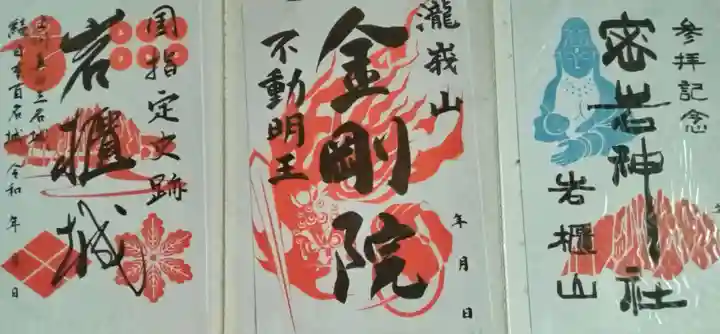 参拝記念
密岩神社
岩櫃山
瀧峩山
金剛院
不動明王
年 月 日
国指定史跡
岩櫃城
続日本百名城 令和 年 月 日